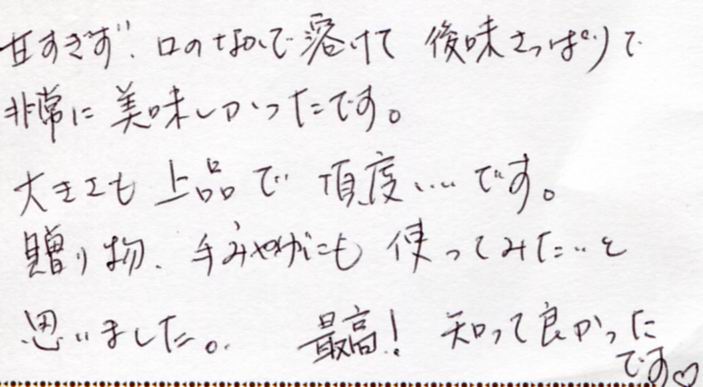 甘すぎず、口のなかで溶けて 後味さっぱりで
非常に美味しかったです。
大きさも上品で 頂度いいです。
贈り物、手みやげにも 使ってみたいと
思いました。 最高! 知って良かった
です♡